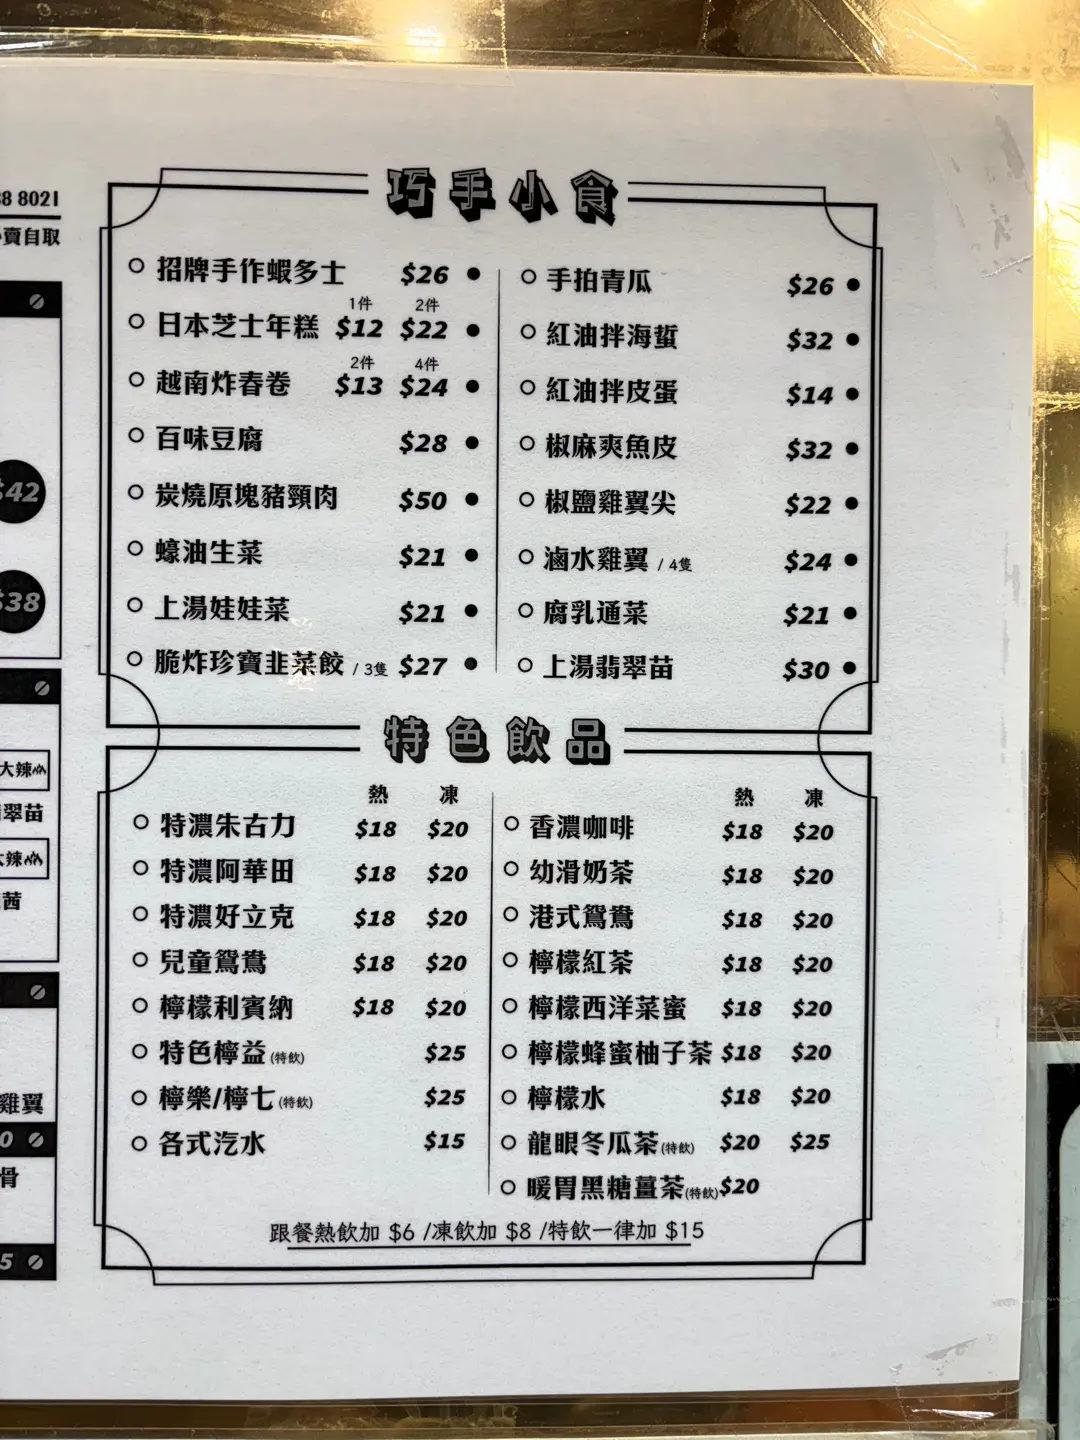 8 8021
賣自取
$42
$38
大辣
翠苗
大辣
茜
雞翼
0
骨
5
巧手小食
招牌手作蝦多士 $26
1件 2件
日本芝士年糕 $12 $22
2件 4件
越南炸春卷 $13 $24
百味豆腐 $28
炭燒原塊豬頸肉 $50
蠔油生菜 $21
上湯娃娃菜 $21
脆炸珍寶韭菜餃 / 3隻 $27
手拍青瓜 $26
紅油拌海蜇 $32
紅油拌皮蛋 $14
椒麻爽魚皮 $32
椒鹽雞翼尖 $22
滷水雞翼 / 4隻 $24
腐乳通菜 $21
上湯翡翠苗 $30
特色飲品
熱 凍
特濃朱古力 $18 $20
特濃阿華田 $18 $20
特濃好立克 $18 $20
兒童鴛鴦 $18 $20
檸檬利賓納 $18 $20
特色檸益(特飲) $25
檸樂/檸七(特飲) $25
各式汽水 $15
熱 凍
香濃咖啡 $18 $20
幼滑奶茶 $18 $20
港式鴛鴦 $18 $20
檸檬紅茶 $18 $20
檸檬西洋菜蜜 $18 $20
檸檬蜂蜜柚子茶 $18 $20
檸檬水 $18 $20
龍眼冬瓜茶(特飲) $20 $25
暖胃黑糖薑茶(特飲) $20
跟餐熱飲加 $6 /凍飲加 $8 /特飲一律加 $15